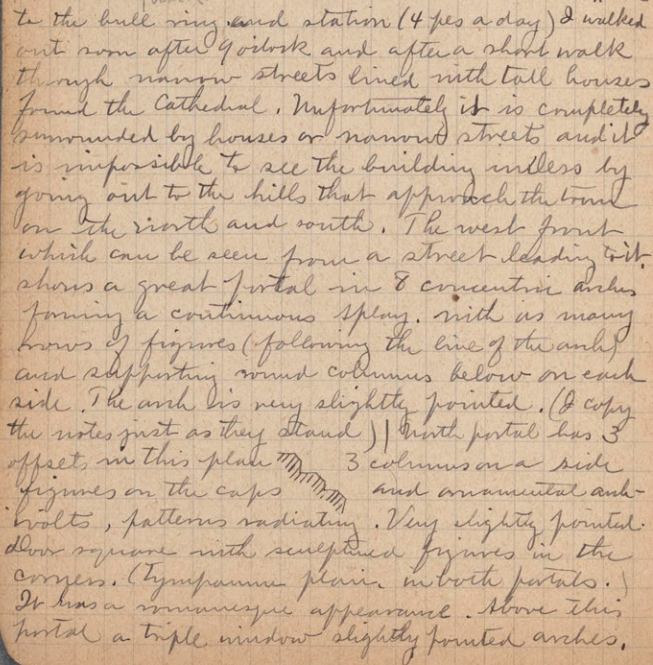 to the bull ring and station (4 pes a day) I walked
out soon after 9 o'clock and after a short walk
through narrow streets lined with tall houses
found the Cathedral. Unfortunately it is completely
surrounded by houses or narrow streets and it
is impossible to see the building unless by
going out to the hills that approach the town
on the north and south. The west front
which can be seen from a street leading to it,
shows a great portal in 8 concentric arches
forming a continuous splay. with as many
rows of figures (following the line of the arch)
and supporting round columns below on each
side. The arch is very slightly pointed. (I copy
the notes just as they stand) | North portal has 3
offsets in this plan 3 columns on a side
figures on the caps and ornamental arch-
ivolts, patterns radiating. Very slightly pointed.
Door square with sculptured figures in the
corners. (Tympanum plain in both portals.)
It has a romanesque appearance. Above this
portal a triple window slightly pointed arches.